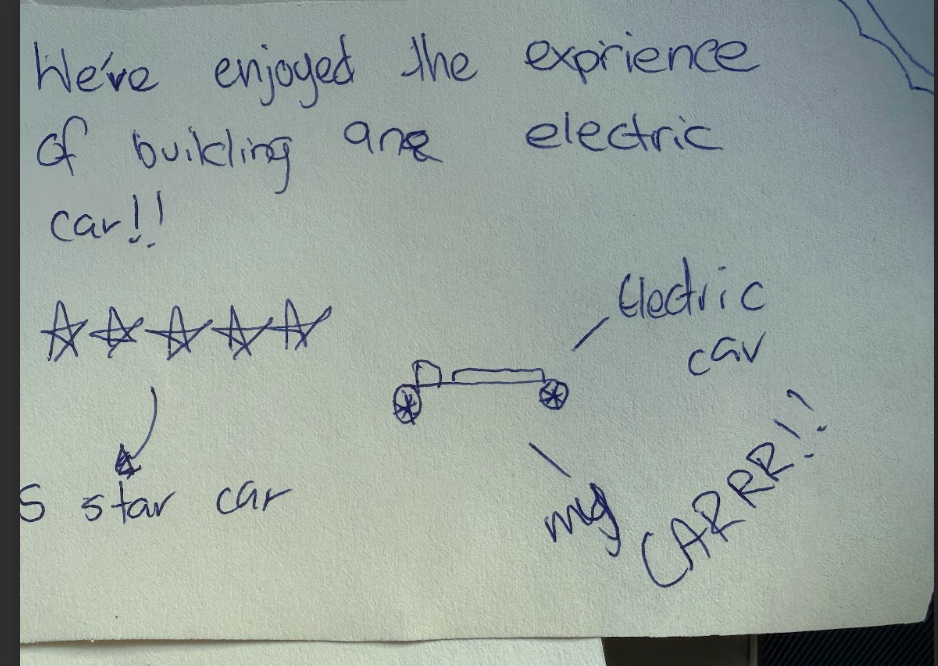 We've enjoyed the exprience
of building ane electric
car!!
Electric
car
5 star car
my CARRR!!